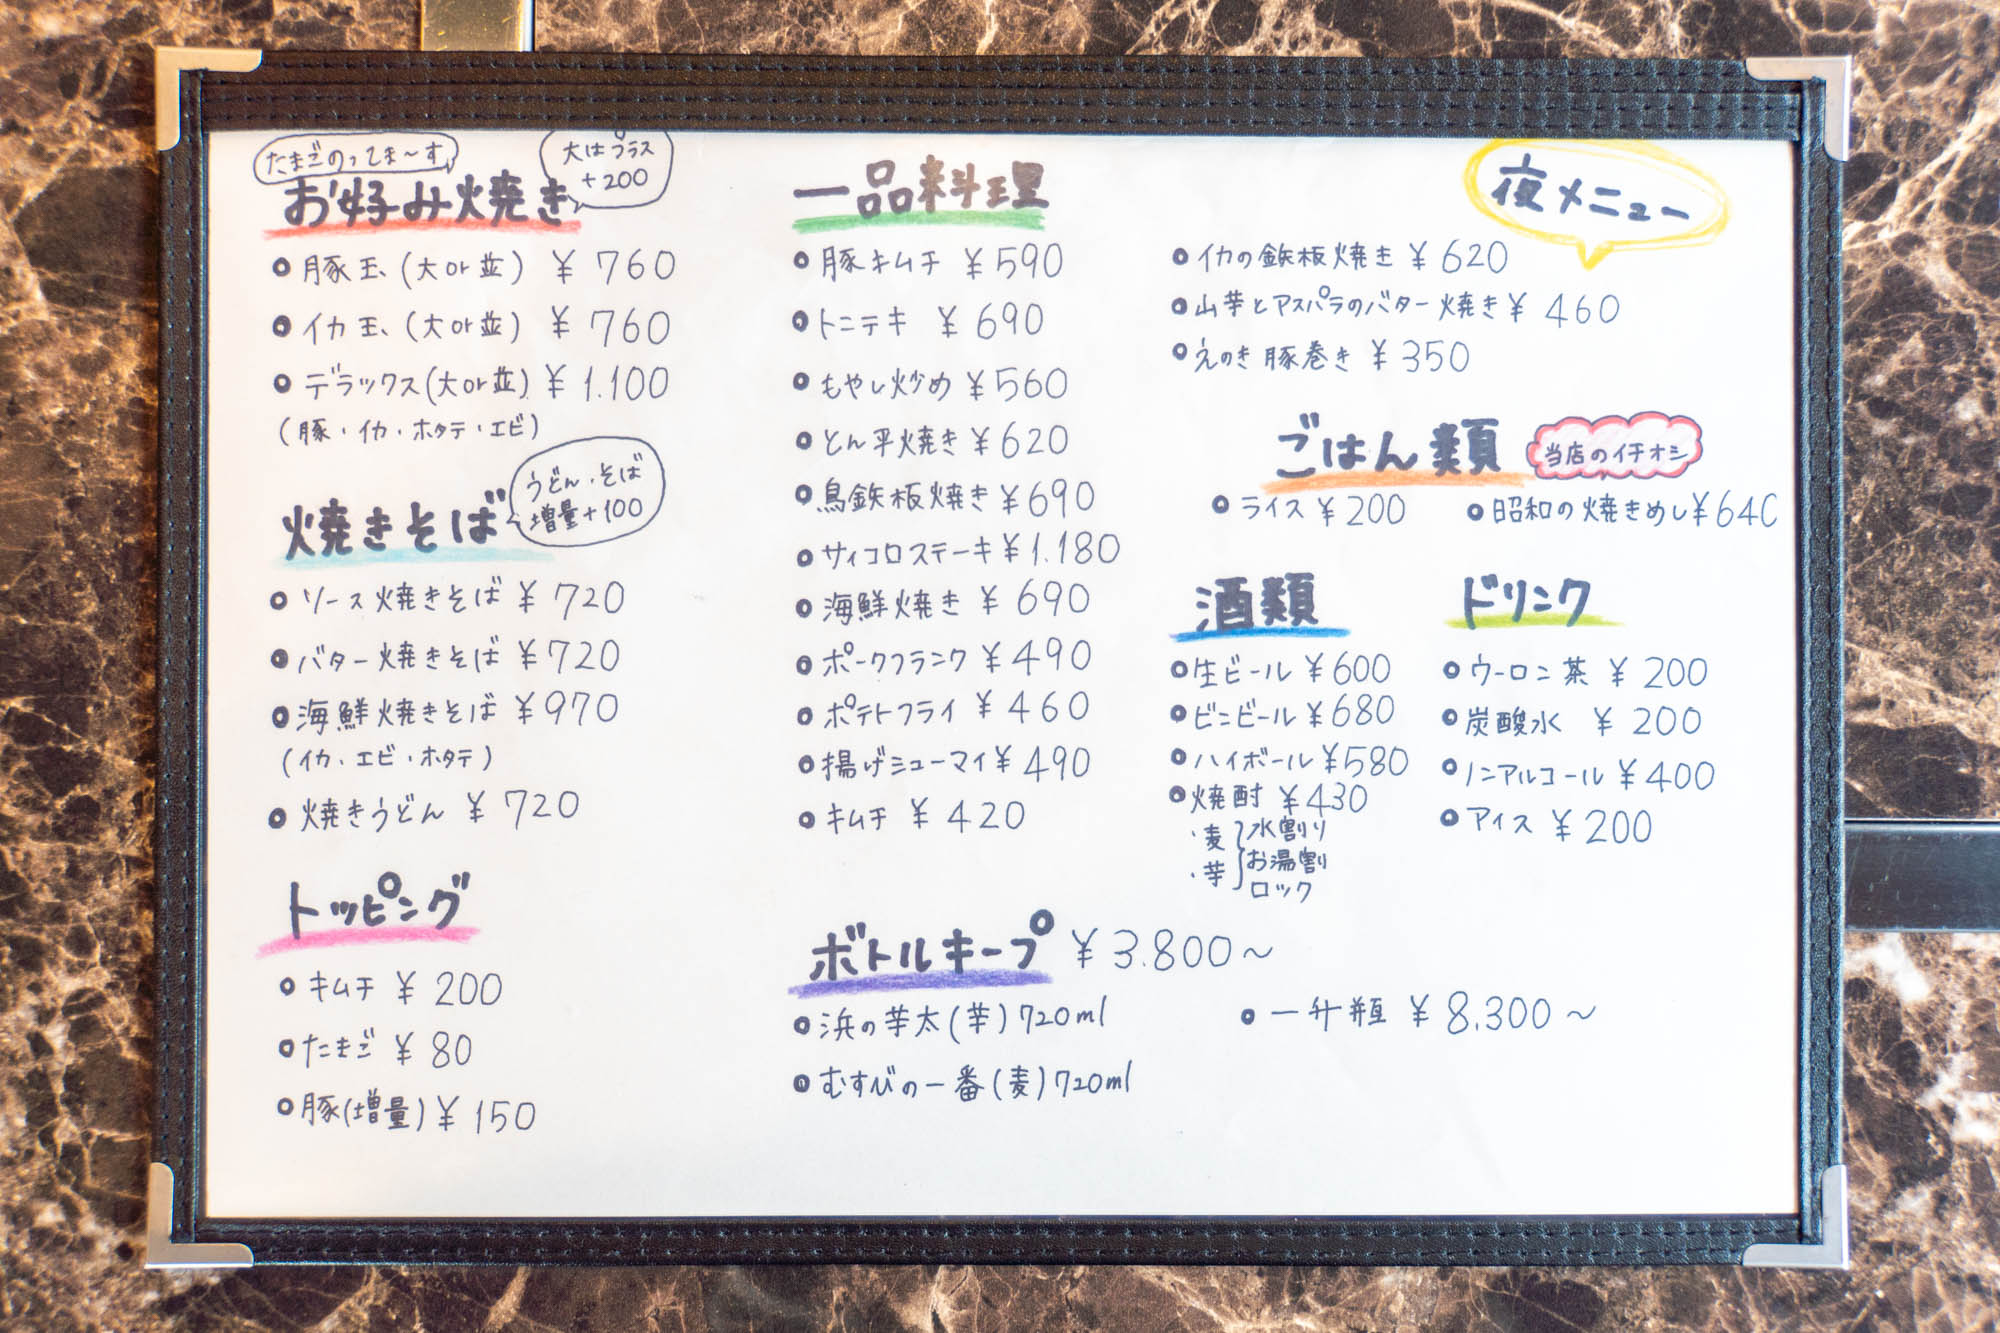 たまごのってま〜す
お好み焼き
大はプラス
+200
豚玉(大or並) ¥760
イカ玉(大or並) ¥760
デラックス(大or並) ¥1.100
(豚・イカ・ホタテ・エビ)
焼きそば
うどん・そば
増量+100
ソース焼きそば ¥720
バター焼きそば ¥720
海鮮焼きそば ¥970
(イカ・エビ・ホタテ)
焼きうどん ¥720
トッピング
キムチ ¥200
たまご ¥80
豚(増量) ¥150
一品料理
豚キムチ ¥590
トンテキ ¥690
もやし炒め ¥560
とん平焼き ¥620
鳥鉄板焼き ¥690
サイコロステーキ ¥1.180
海鮮焼き ¥690
ポークフランク ¥490
ポテトフライ ¥460
揚げシューマイ ¥490
キムチ ¥420
夜メニュー
イカの鉄板焼き ¥620
山芋とアスパラのバター焼き ¥460
えのき豚巻き ¥350
ごはん類
当店のイチオシ
ライス ¥200
昭和の焼きめし ¥640
酒類
生ビール ¥600
ビンビール ¥680
ハイボール ¥580
焼酎 ¥430
・麦
・芋
水割り
お湯割
ロック
ドリンク
ウーロン茶 ¥200
炭酸水 ¥200
ノンアルコール ¥400
アイス ¥200
ボトルキープ ¥3.800〜
浜の芋太(芋)720ml
むすびの一番(麦)720ml
一升瓶 ¥8.300〜